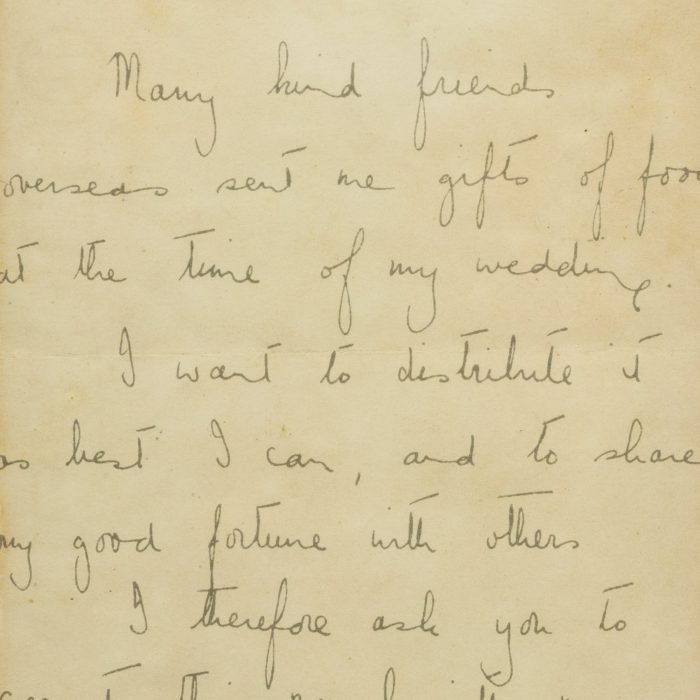 Many kind friends
overseas sent me gifts of food
at the time of my wedding.
I want to distribute it
as best I can, and to share
my good fortune with others
I therefore ask you to